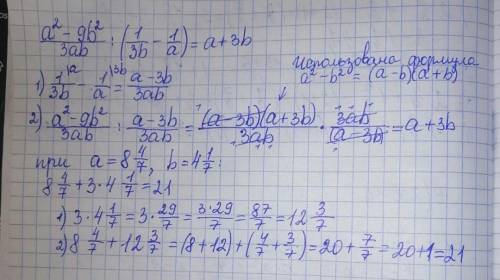 (a² - 9b²)/(3ab) : (1/(3b) - 1/a) = a + 3b
Использована формула
a² - b² = (a - b)(a + b)
1) 1/(3b)^(\a) - 1/a^(\3b) = (a - 3b)/(3ab)
2) (a² - 9b²)/(3ab) : (a - 3b)/(3ab) = ((a - 3b)(a + 3b))/(3ab) · (3ab)/(a - 3b) = a + 3b
при a = 8 4/7, b = 4 1/7 :
8 4/7 + 3 · 4 1/7 = 21
1) 3 · 4 1/7 = 3 · 29/7 = (3 · 29)/7 = 87/7 = 12 3/7
2) 8 4/7 + 12 3/7 = (8 + 12) + (4/7 + 3/7) = 20 + 7/7 = 20 + 1 = 21